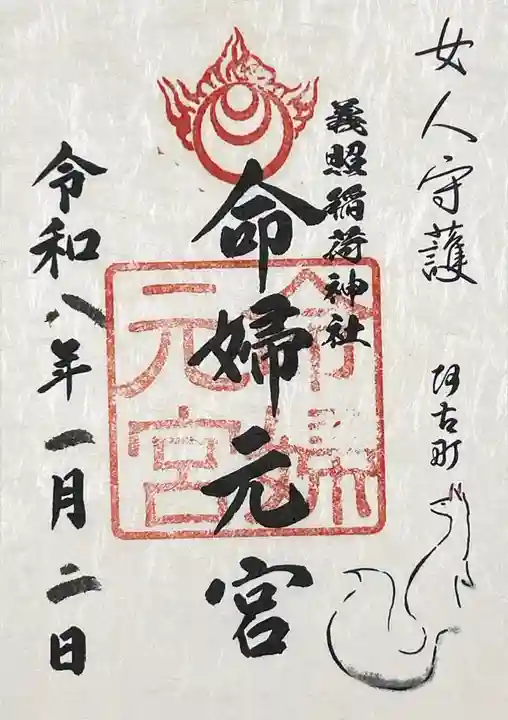 女人守護
阿古町
義照稲荷神社
命婦元宮
命婦元宮
令和八年一月二日